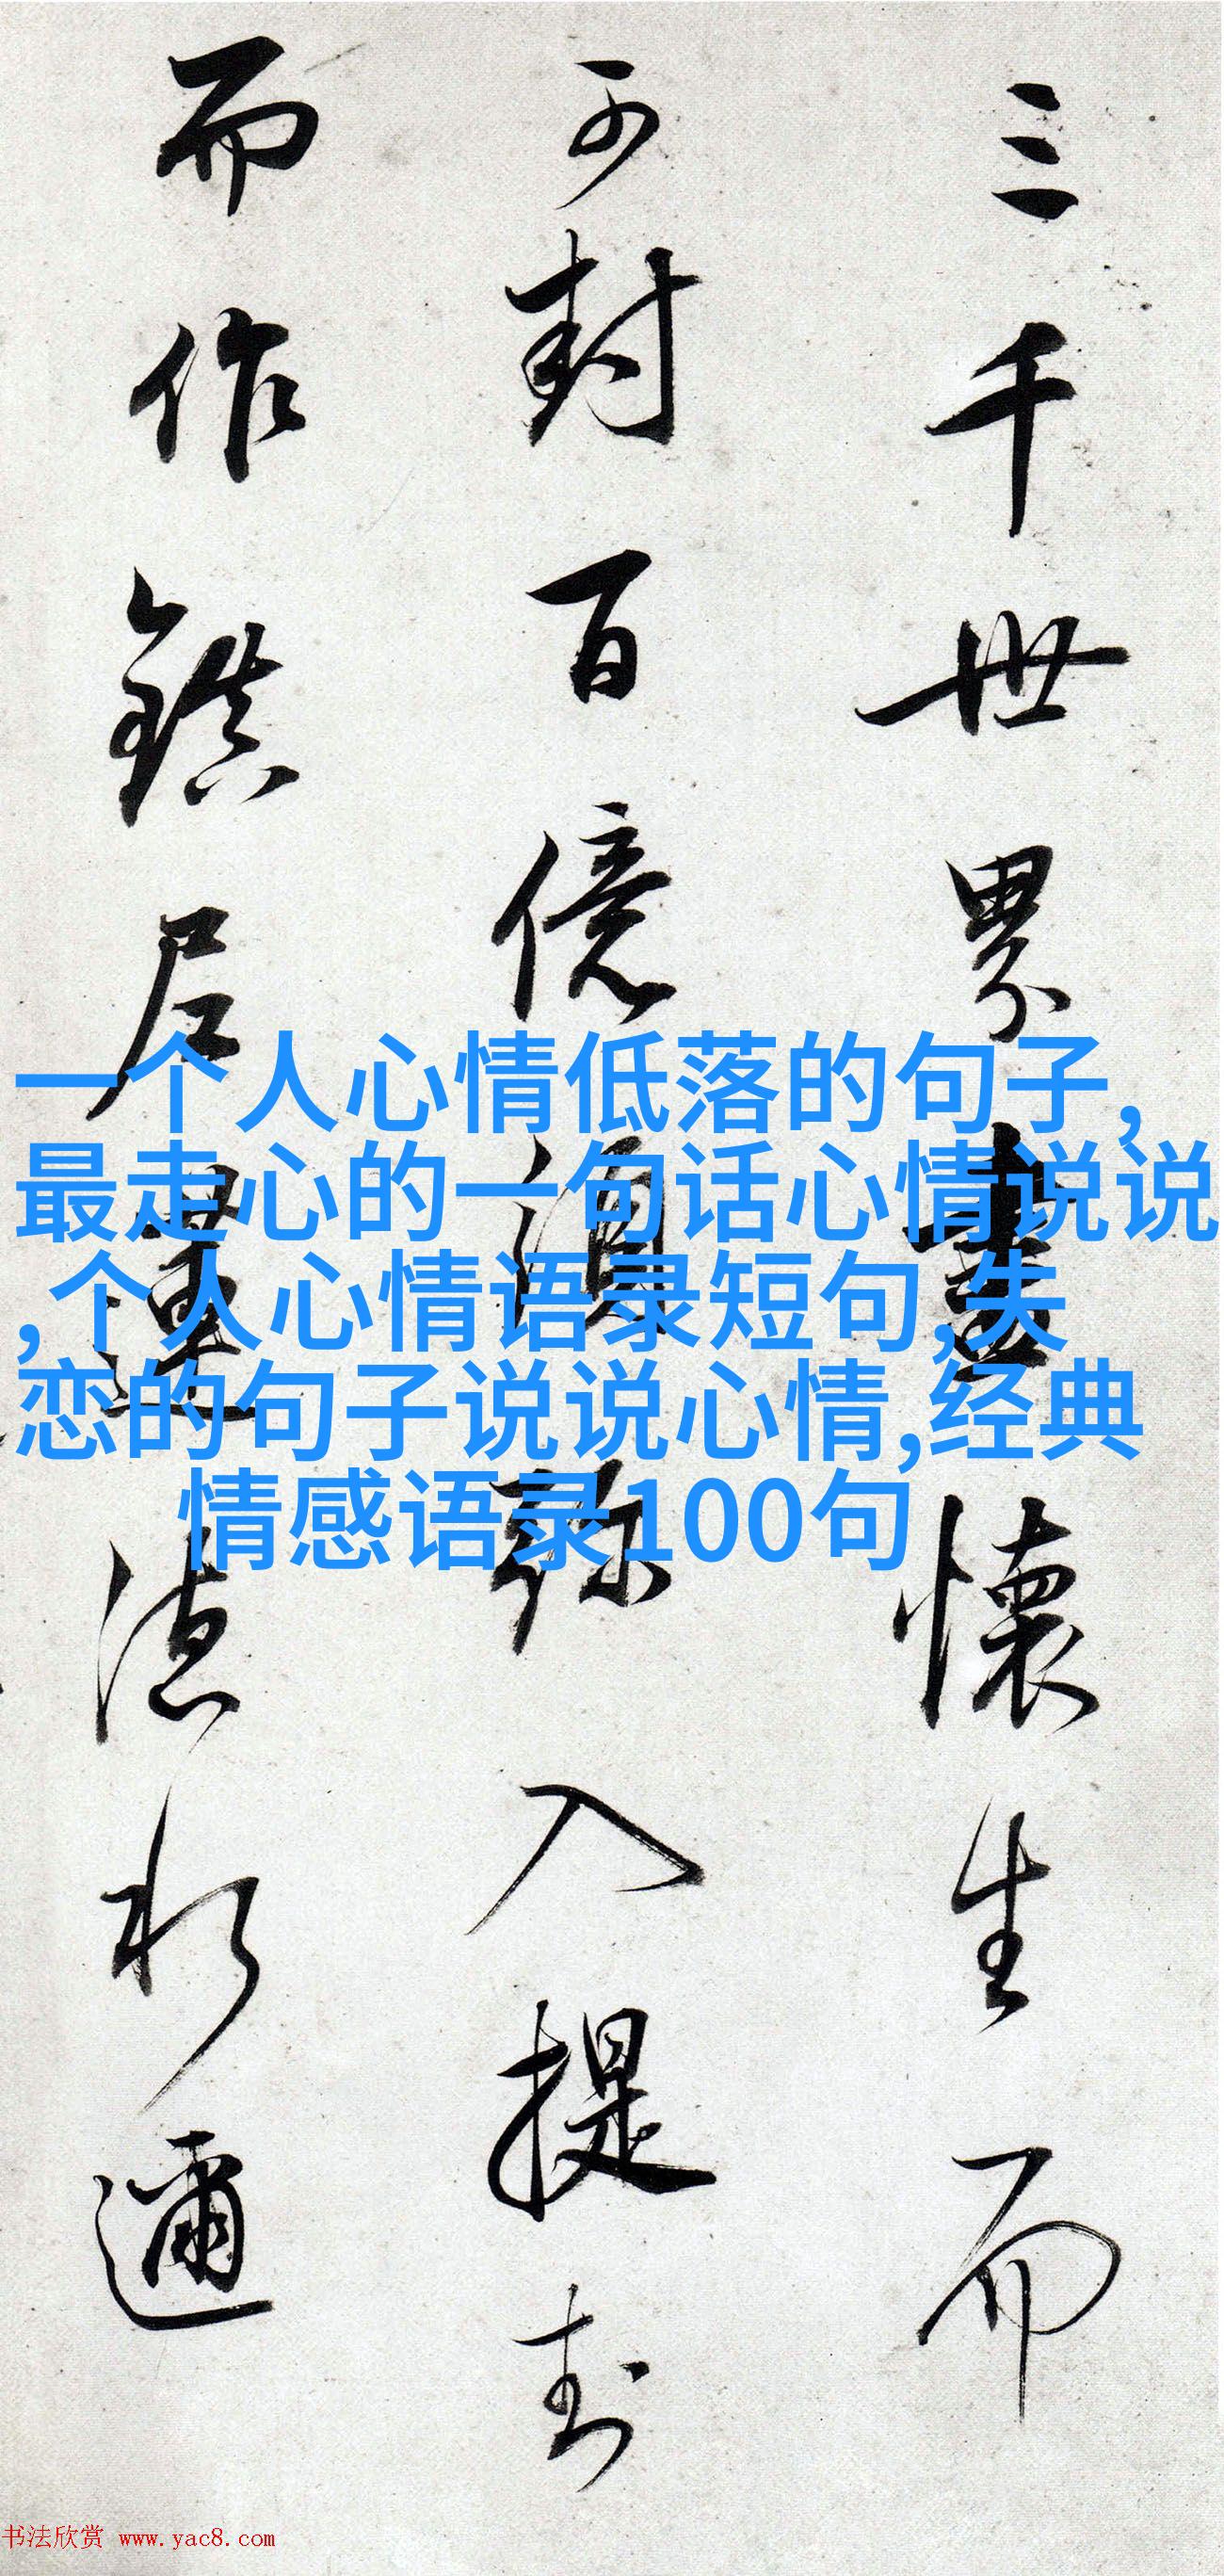 三千世界盡懷生而
可封百億須彌入提封
而作鎮尼連德水邇
一个人心情低落的句子,
最走心的一句话心情说说
,个人心情语录短句,失
恋的句子说说心情,经典
情感语录100句
书法欣赏 www.yac8.com